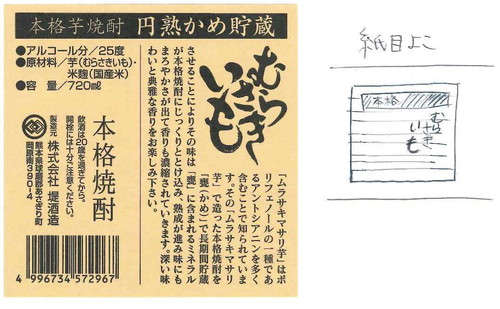 本格芋焼酎 円熟かめ貯蔵
●アルコール分／25度
●原材料／芋(むらさきいも)・
米麹(国産米)
●容　量／720㎖
むらさき
いも
「ムラサキマサリ芋」はポ
リフェノールの一種であ
るアントシアニンを多く
含むことで知られていま
す。その「ムラサキマサリ
芋」で造った本格焼酎を
「甕(かめ)」で長期間貯蔵
させることによりその味は
「甕」に含まれるミネラル
が本格焼酎にじっくりととけ込み、熟成が進み味にも
まろやかさが出て香りも濃縮されていきます。深い味
わいと典雅な香りをお楽しみ下さい。
本格焼酎
飲酒は20歳を過ぎてから。
開栓には十分ご注意ください。
製造元 株式会社 堤酒造
熊本県球磨郡あさぎり町
岡原南390-4
4 996734 572967
紙目よこ
本格
むらさき
いも